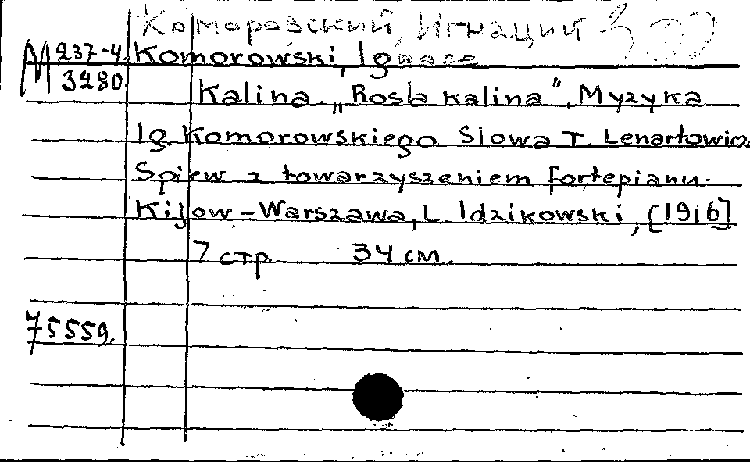 Коморовский, Игнаций
М 237-4
3280
Komorowski, Ignace
Kalina „Rosła kalina“. Myzyka
Ig. Komorowskiego Slowa T. Lenartowicz
Spiew z towarzyszeniem fortepianu.
Kijow-Warszawa, L. Idzikowski, [1916]
7 стр. 34 см.
75559.